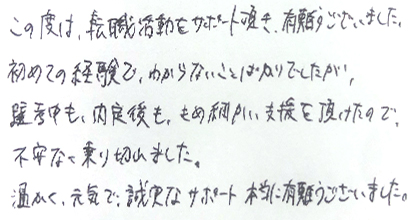 この度は、転職活動をサポート頂き、有難うございました。
初めての経験で、わからないことばかりでしたが、
中も、内定後も、きめ細かい支援を頂けたので、
不安なく乗り切れました。
温かく、元気で、誠実なサポート本当に有難うございました。